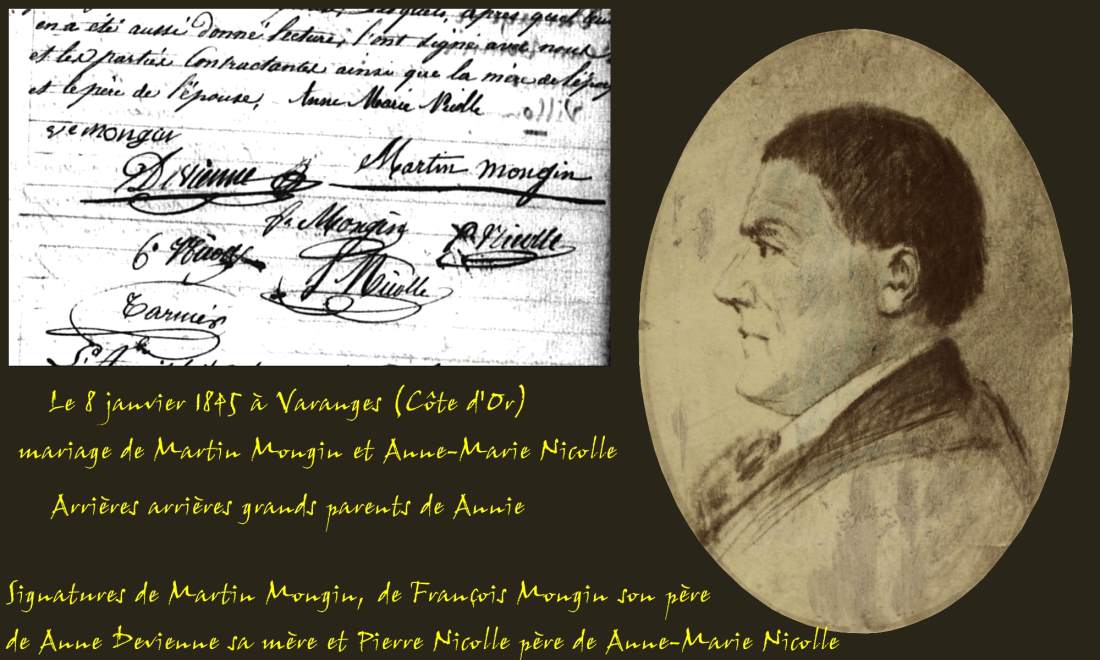 en a été aussi donné lecture, l'ont signé avec nous
et les parties contractantes ainsi que la mère de l'épou
et le père de l'épouse. Anne Marie Nicolle
ve mongin
Devienne Martin mongin
fr Mongin P. Nicolle
C. Nicolle
J Nicolle
Tarnier
Le 8 janvier 1845 à Varanges (Côte d'Or)
mariage de Martin Mongin et Anne-Marie Nicolle
Arrières arrières grands parents de Annie
Signatures de Martin Mongin, de François Mongin son père
de Anne Devienne sa mère et Pierre Nicolle père de Anne-Marie Nicolle